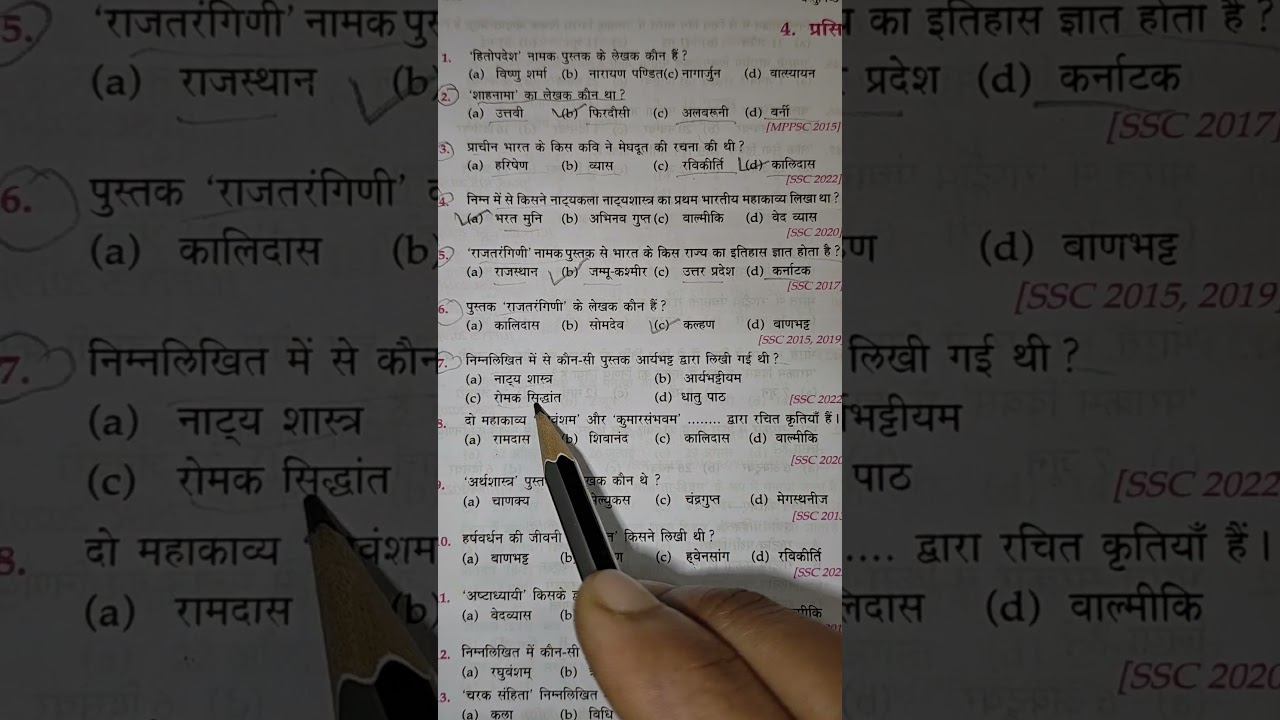 4. प्रसि
1. 'हितोपदेश' नामक पुस्तक के लेखक कौन हैं ?
(a) विष्णु शर्मा (b) नारायण पण्डित (c) नागार्जुन (d) वात्स्यायन
2. 'शाहनामा' का लेखक कौन था ?
(a) उतवी (b) फिरदौसी (c) अलबरूनी (d) बर्नी
[MPPSC 2015]
3. प्राचीन भारत के किस कवि ने मेघदूत की रचना की थी ?
(a) हरिषेण (b) व्यास (c) रविकीर्ति (d) कालिदास
[SSC 2022]
4. निम्न में से किसने नाट्यकला नाट्यशास्त्र का प्रथम भारतीय महाकाव्य लिखा था ?
(a) भरत मुनि (b) अभिनव गुप्त (c) वाल्मीकि (d) वेद व्यास
[SSC 2020]
5. 'राजतरंगिणी' नामक पुस्तक से भारत के किस राज्य का इतिहास ज्ञात होता है ?
(a) राजस्थान (b) जम्मू-कश्मीर (c) उत्तर प्रदेश (d) कर्नाटक
[SSC 2017]
6. पुस्तक 'राजतरंगिणी' के लेखक कौन हैं ?
(a) कालिदास (b) सोमदेव (c) कल्हण (d) बाणभट्ट
[SSC 2015, 2019]
7. निम्नलिखित में से कौन-सी पुस्तक आर्यभट्ट द्वारा लिखी गई थी ?
(a) नाट्य शास्त्र (b) आर्यभट्टीयम
(c) रोमक सिद्धांत (d) धातु पाठ [SSC 2022
8. दो महाकाव्य वंशम' और 'कुमारसंभवम' ........ द्वारा रचित कृतियाँ हैं।
(a) रामदास (b) शिवानंद (c) कालिदास (d) वाल्मीकि
[SSC 2020
9. 'अर्थशास्त्र' पुस्त खक कौन थे ?
(a) चाणक्य ल्युकस (c) चंद्रगुप्त (d) मेगस्थनीज
[SSC 201
10. हर्षवर्धन की जीवनी किसने लिखी थी ?
(a) बाणभट्ट (b) (c) ह्वेनसांग (d) रविकीर्ति
[SSC 202
1. 'अष्टाध्यायी' किसके
(a) वेदव्यास (b)
2. निम्नलिखित में कौन-सी
(a) रघुवंशम् (b)
3. 'चरक संहिता' निम्नलिखित
(a) कला (b) विधि